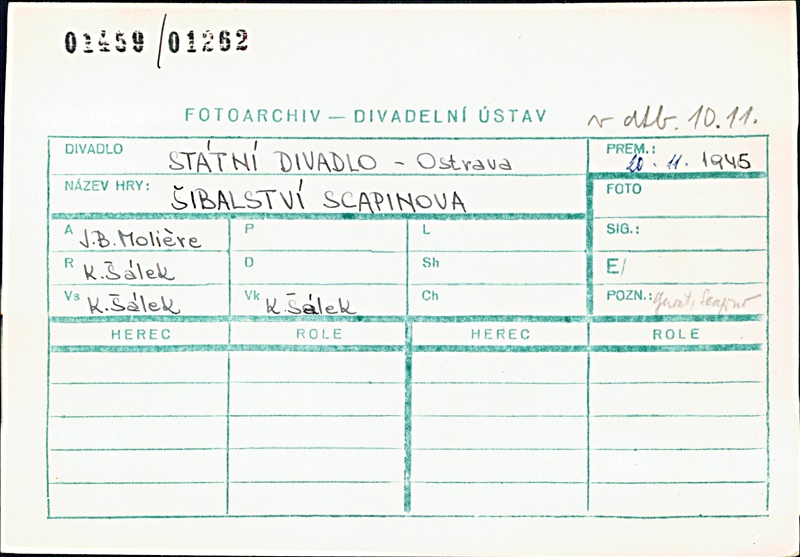 01459/01262
FOTOARCHIV — DIVADELNÍ ÚSTAV
v dtb. 10.11.
DIVADLO STÁTNÍ DIVADLO - Ostrava PREM.: 20. 11. 1945
NÁZEV HRY: ŠIBALSTVÍ SCAPINOVA FOTO
A J.B. Molière P L SIG.:
R K. Šálek D Sh E/
Vs K. Šálek Vk K. Šálek Ch POZN.: Geront, Scapino
HEREC ROLE HEREC ROLE